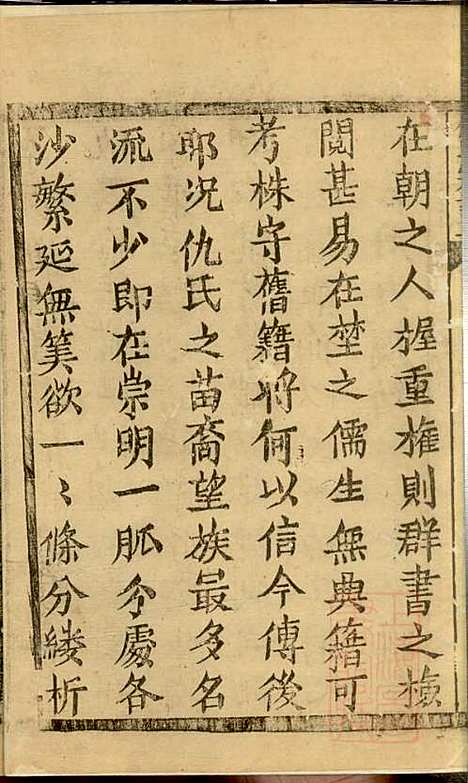 在朝之人握重權則群書之撿
閱甚易在埜之儒生無典籍可
考株守舊籍將何以信今傳後
耶况仇氏之苗裔望族最多名
流不少即在崇明一脈分處各
沙繁延無筭欲一〻條分縷析